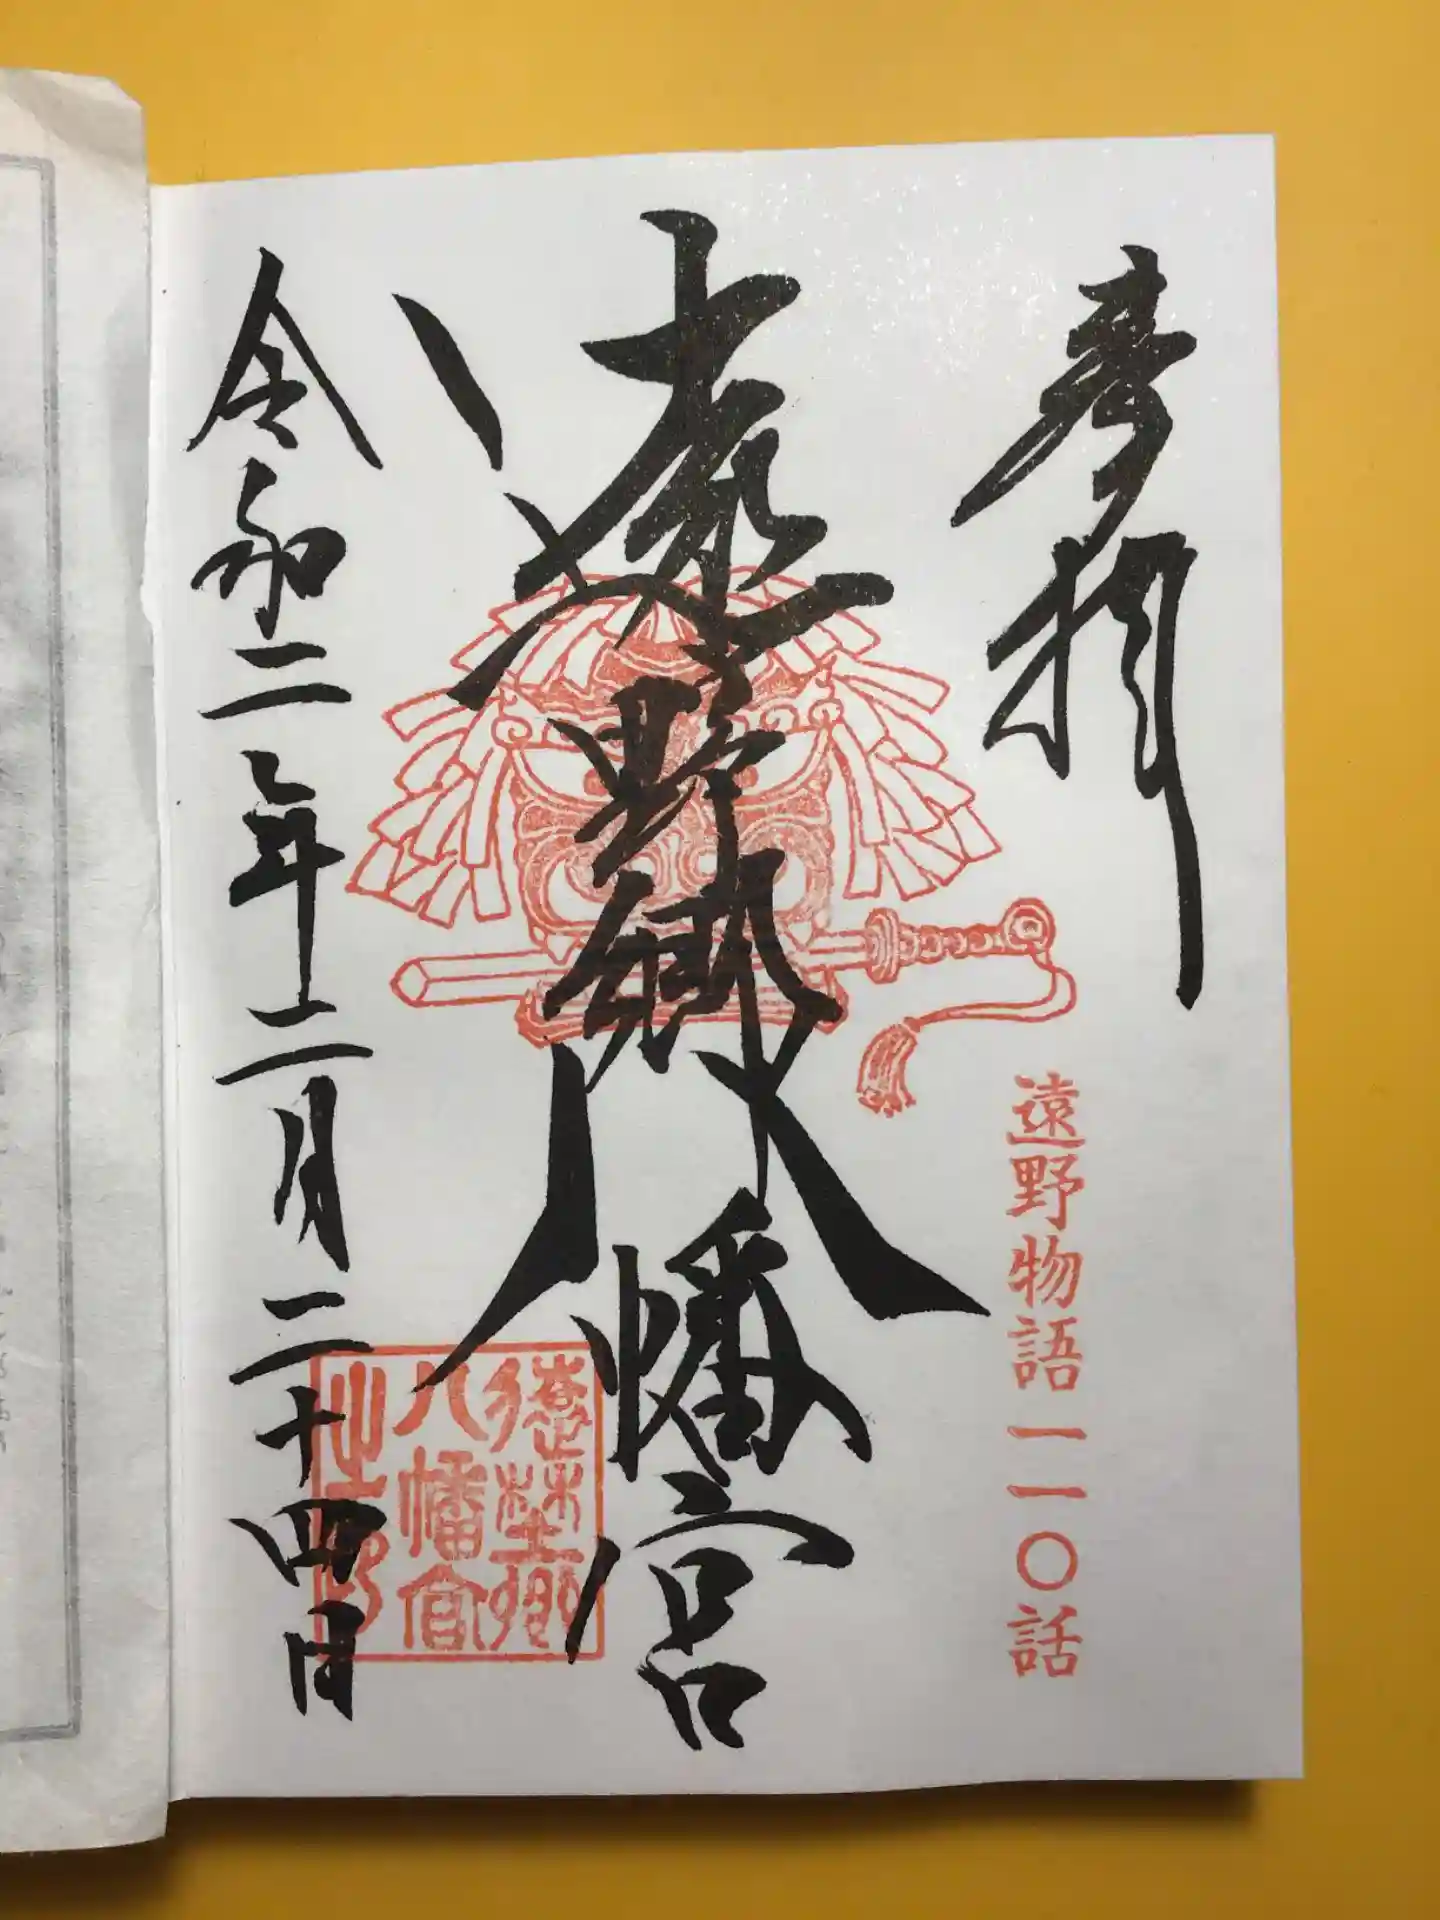 奉拝
遠野物語一一〇話
遠野郷八幡宮
遠野郷
八幡宮
之印
令和二年二月二十四日